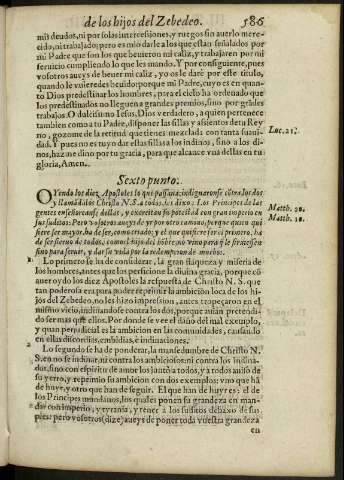 de los hijos del Zebedeo. 586
mis deudos, ni por solas intercessiones, y ruegos sin auerlo mere-
cido, ni trabajado; pero es mio darle a los que estan señalados por
mi Padre que son los que beuieron mi caliz, y trabajaren por mi
seruicio cumpliendo lo que les mando. Y por consiguiente, pues
vosotros aueys de beuer mi caliz, yo os le darè por este titulo,
quando le vuieredes beuido: porque mi Padre, cuyo es en quan-
to Dios predestinar los hombres, para el cielo ha ordenado que
los predestinados no lleguen a grandes premios, sino por grādes
trabajos. O dulcissimo Iesus, Dios verdadero, a quien pertenece
tambien como a tu Padre, disponer las sillas y assientos de tu Rey
no, gozome de la retitud que tienes mezclada con tanta suaui-
dad. Y pues no es tuyo dar estas sillas a los indinos, sino a los di-
nos, hazme dino por tu gracia, para que alcance vna dellas en tu
gloria, Amen.
Luc. 22.
Sexto punto.
OYendo los diez Apostoles lo que passaua: indignaronse cōtra los dos
y llamādolos Christo N. S. a todos, les dixo: Los Principes de las
gentes enseñorean se dellas, y exercitan su potestad con gran imperio en
sus suditos: Pero vosotros aueys de yr por otro camino, porque quien qui
siere ser mayor, ha de ser, como criado; y el que quisiere ser el primero, ha
de ser sieruo de todos, como el hijo del hōbre, no vino para q̄ le siruiessen
sino para seruir, y dar su vida por la redempcion de muchos.
Matth. 20.
Matth. 18.
Lo primero se ha de considerar, la gran flaqueza y miseria de
los hombres, antes que los perficione la diuina gracia, porque cō
auer oydo los diez Apostoles la respuesta de Christo N. S. que
tan poderosa era para poder reprimir la ambicion loca de los hi-
jos del Zebedeo, no les hizo impression, antes tropeçaron en el
mismo vicio, indinandose contra los dos, porque auian pretendi-
do ser mas que ellos. Por donde se vee el daño del mal exemplo,
y quan perjudicial es la ambicion en las comunidades, causando
en ellas discordias, embidias, è indinaciones.
2 Lo segundo se ha de ponderar, la mansedumbre de Christo N.
S. en no se indinar, ni contra los ambiciosos: ni contra los indina-
dos, sino con espiritu de amor los juntò a todos, y a todos auisò de
su yerro, y reprimio su ambicion con dos exemplos: vno que hā
de huyr, y otro que han de seguir. El que han de huyr es: el de
los Principes mundanos, los quales ponen su grandeza en man-
dar con imperio, y tyrania, y tener a los suditos debaxo de sus
pies: pero vosotros (dize) aueys de poner toda vuestra grandeza
en